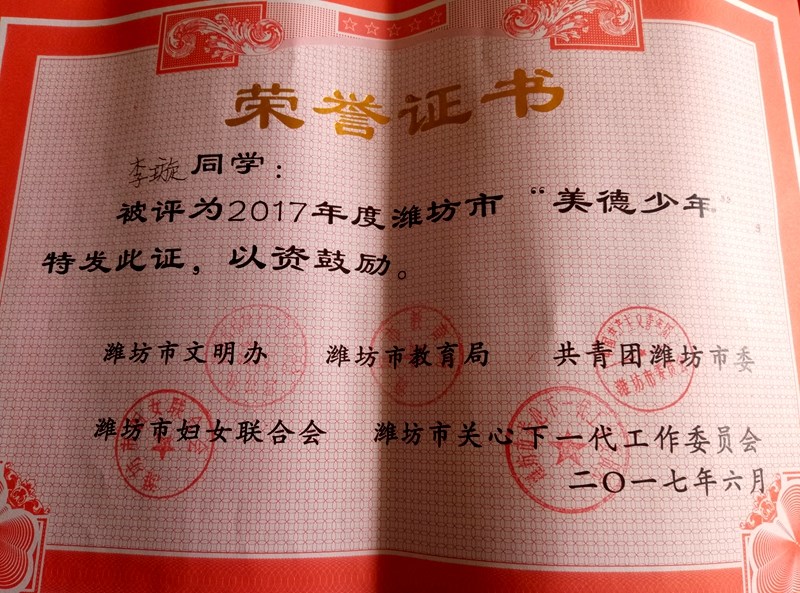 荣誉证书
李璇同学：
被评为2017年度潍坊市“美德少年”。
特发此证，以资鼓励。
潍坊市文明办 潍坊市教育局 共青团潍坊市委
潍坊市妇女联合会 潍坊市关心下一代工作委员会
二〇一七年六月